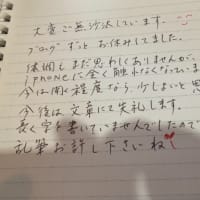 大変ご無沙汰しています。
ブログずっとお休みしてました。
体調もまだ思わしくありませんが、
iphoneに全く触れなくなっていま
今は開く程度なら、少しよいと思
今後は文章にて失礼します。
長く字を書いていませんでしたので
乱筆お許し下さいね